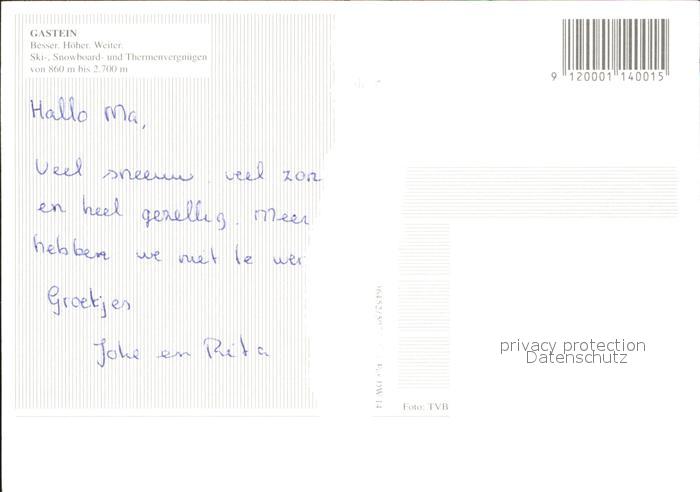 GASTEIN
Besser. Höher. Weiter.
Ski-, Snowboard- und Thermenvergnügen
von 860 m bis 2.700 m
9 120001 140015
Hallo Ma,
Veel sneeuw. veel zon
en heel gezellig. Meer
hebben we niet te
Groetjes
Joke en Rita
privacy protection
Datenschutz
Foto: TVB